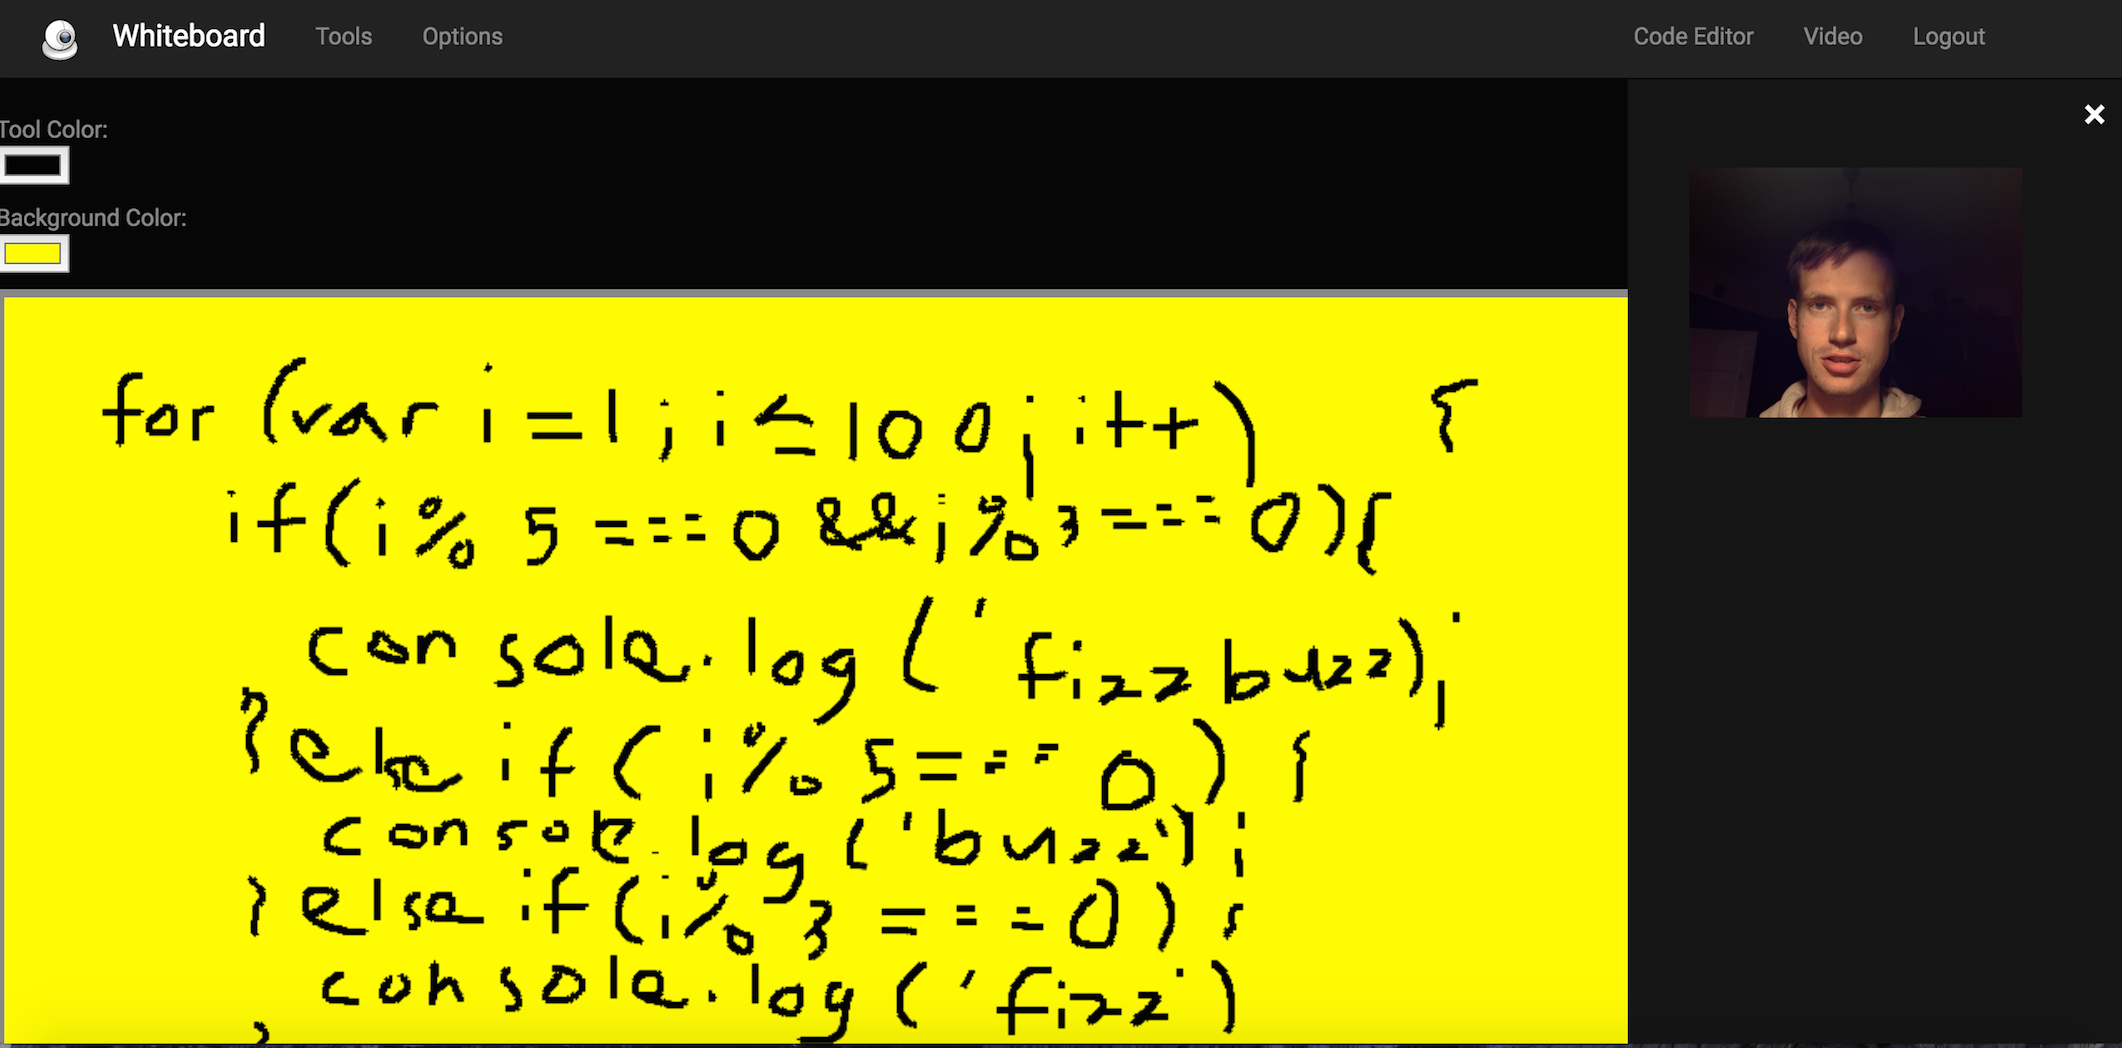 Whiteboard Tools Options Code Editor Video Logout
Tool Color:
Background Color:
for (var i = 1 ; i <= 100; i++) {
if(i % 5 === 0 && i % 3 === 0){
console.log ('fizzbuzz);
}else if (i % 5 === 0) {
console.log ('buzz');
}else if(i % 3 === 0) {
console.log ('fizz')
}